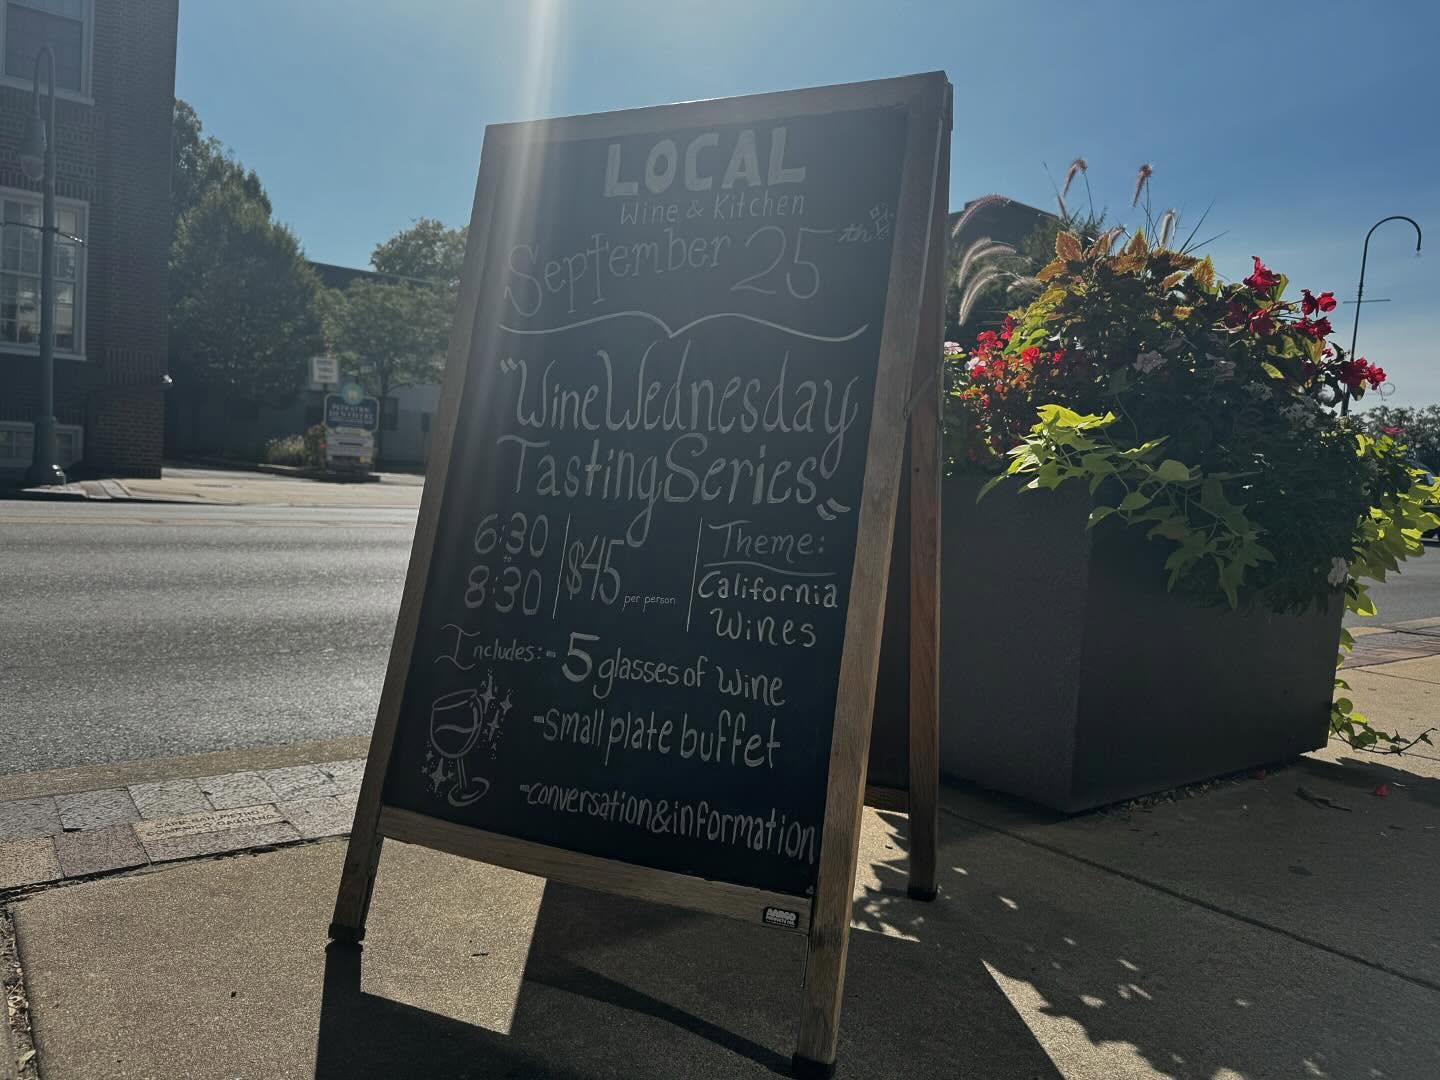 LOCAL
Wine & Kitchen
September 25th
"Wine Wednesday
Tasting Series"
6:30
to
8:30
$45
per person
Theme:
California
Wines
Includes: - 5 glasses of wine
- small plate buffet
- conversation & information
PEDIATRIC
DENTISTRY